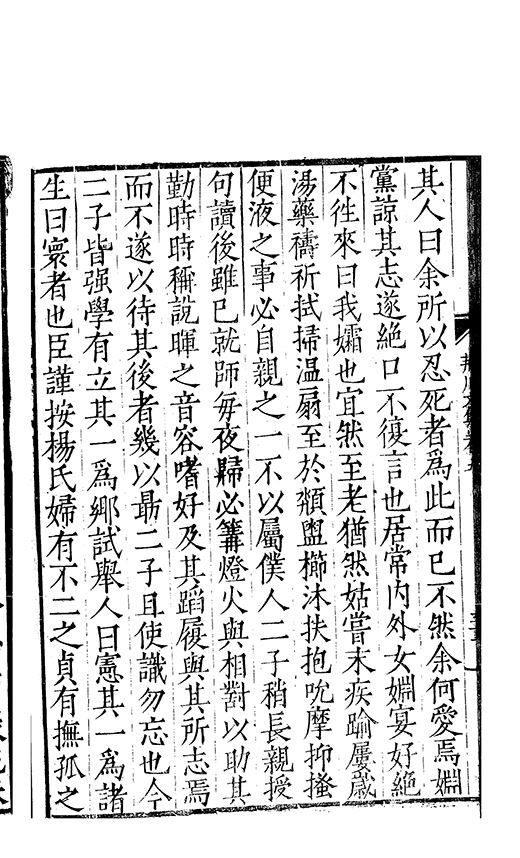 其人曰余所以忍死者爲此而已不然余何愛焉婣
黨諒其志遂絶口不復言也居常内外女婣宴好絶
不徃來曰我孀也宜然至老猶然姑嘗末疾踰屢歲
湯藥禱祈拭掃温扇至於頮盥櫛沐扶抱吮摩抑搔
便液之事必自親之一不以屬僕人二子稍長親授
句讀後雖已就師每夜歸必篝燈火與相對以助其
勤時時稱說暉之音容嗜好及其蹈履與其所志焉
而不遂以待其後者幾以勗二子且使識勿忘也今
二子皆强學有立其一爲鄉試舉人曰憲其一爲諸
生曰寰者也臣謹按楊氏婦有不二之貞有撫孤之